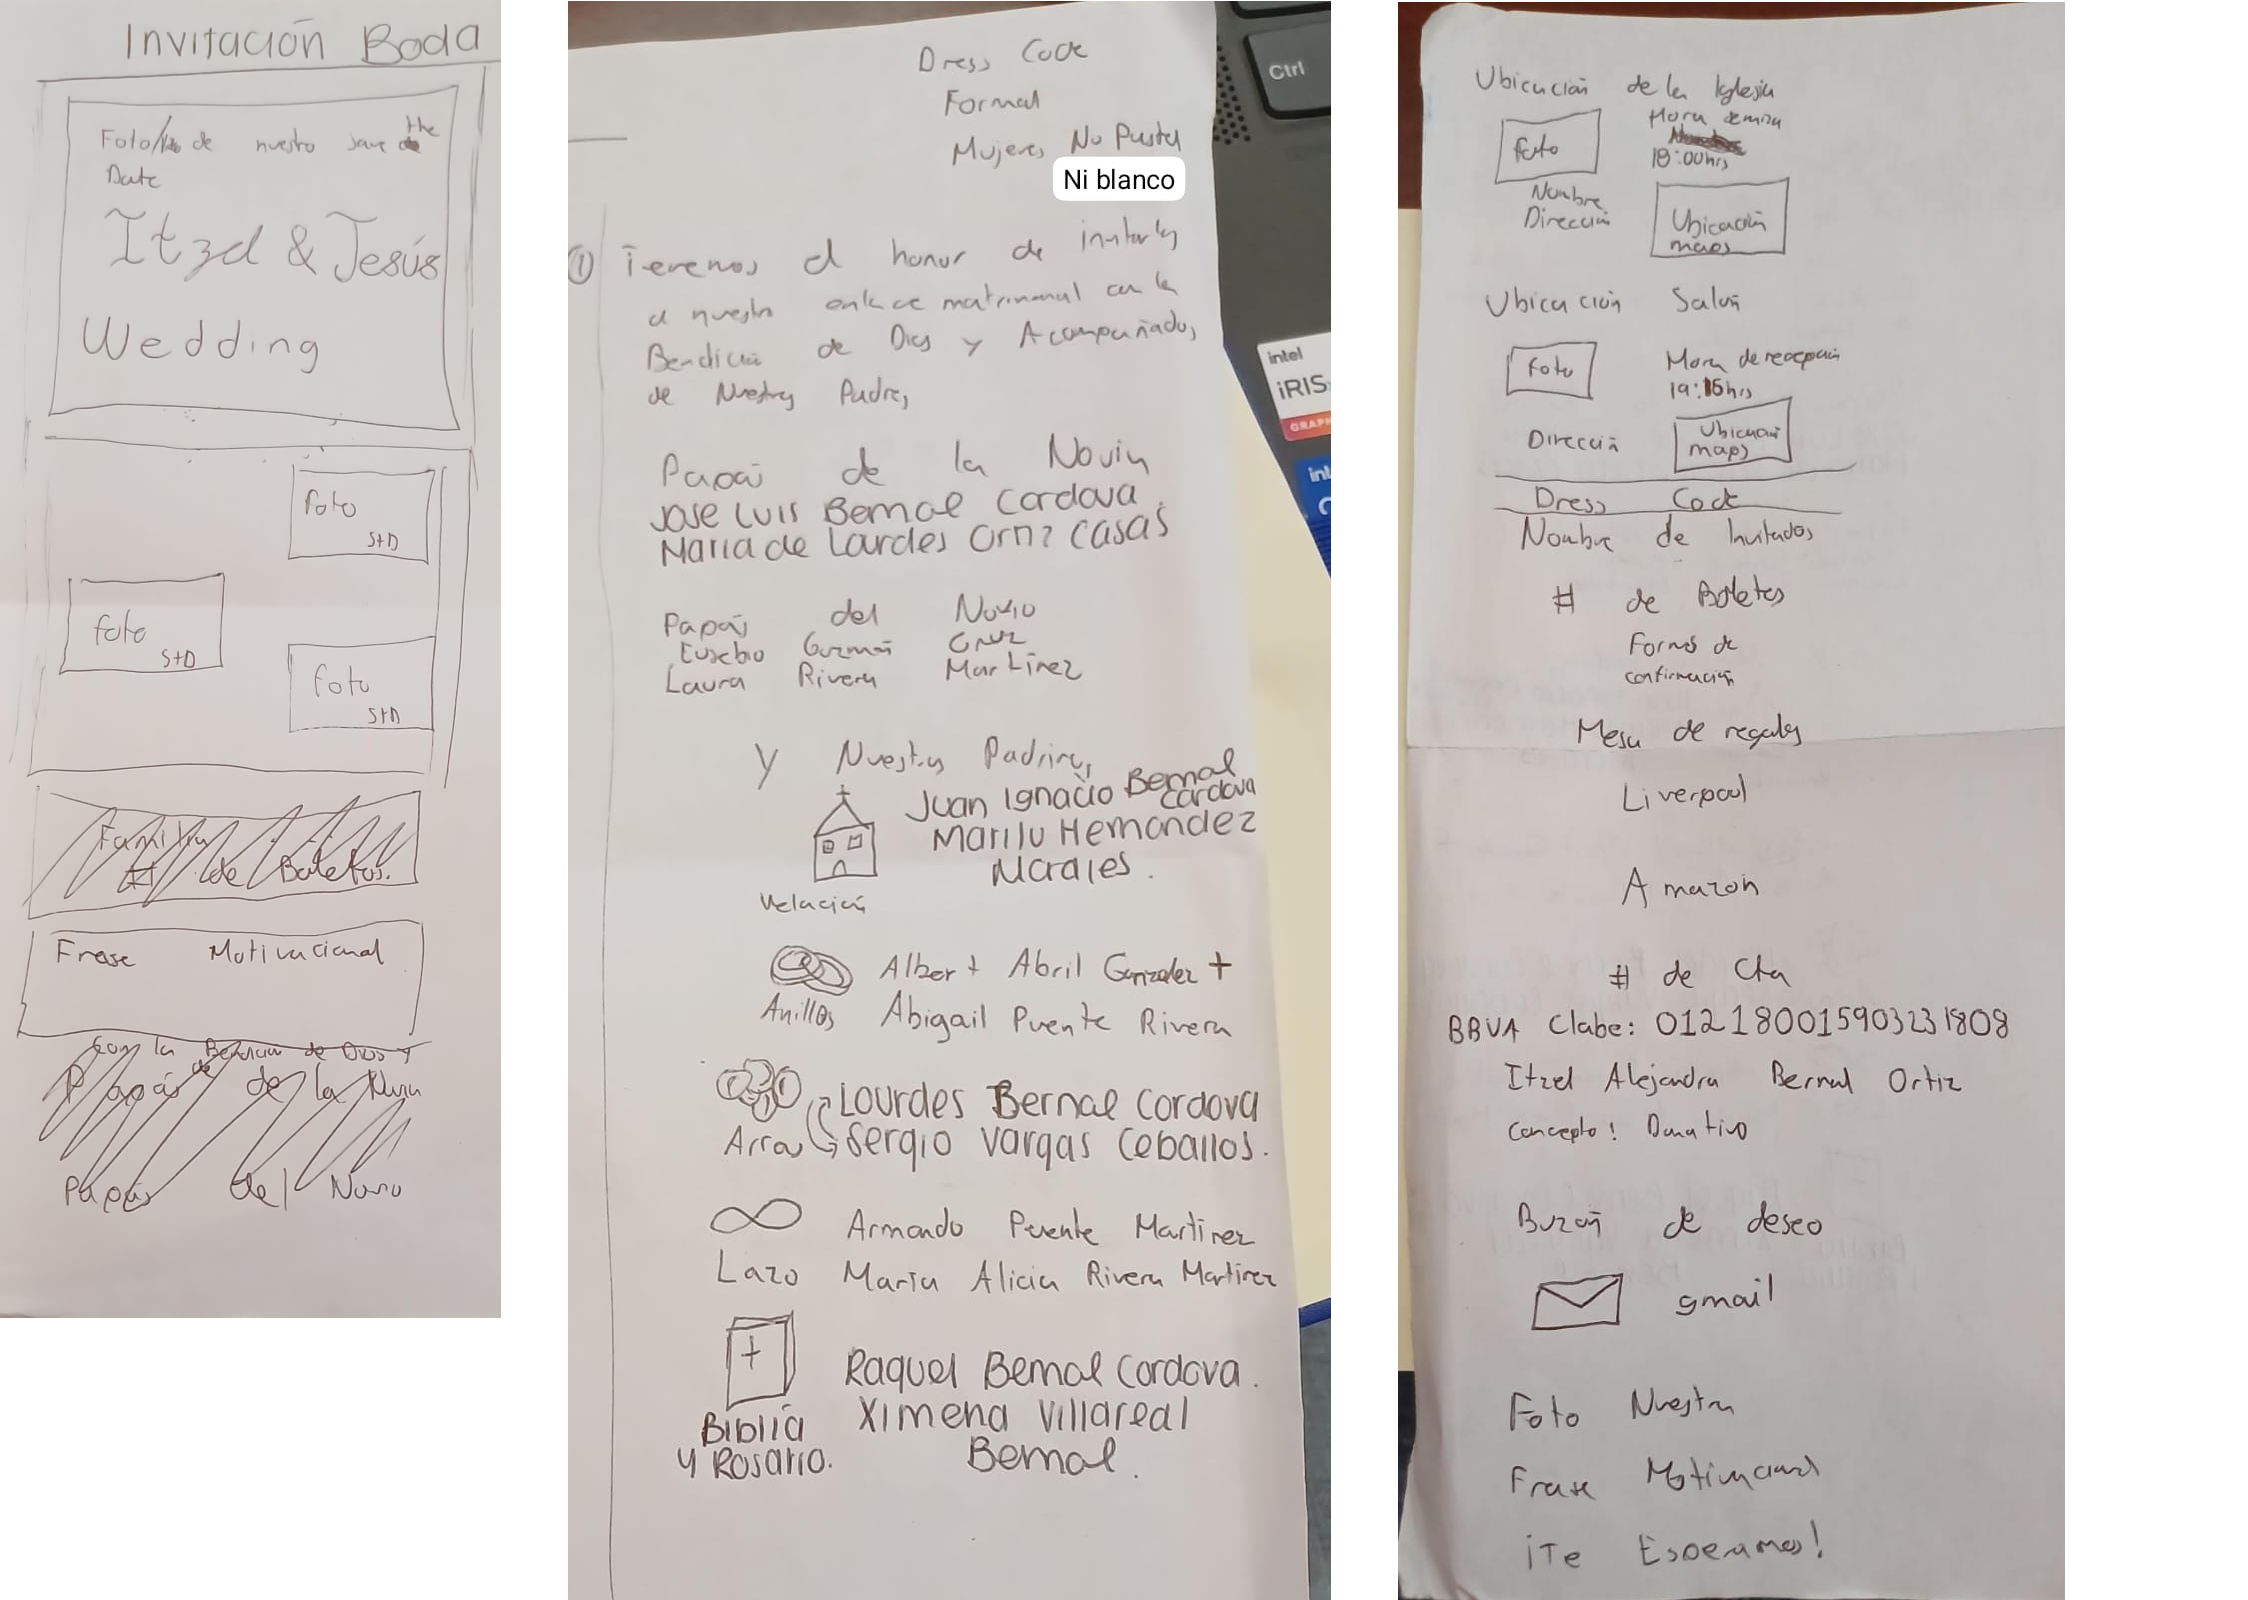 Invitación Boda
Foto/ de nuestro save the
Date
Itzel & Jesús
Wedding
Foto
S+D
foto
S+D
foto
S+D
Familia
# de Boletos.
Frase Motivacional
Con la Bendición de Dios y
Papás de de la Novia
Papás del Novio
Dress Code
Formal
Mujeres No Pastel
Ni blanco
Ctrl
intel
iRIS
GRAPH
① Tenemos el honor de invitarles
a nuestro enlace matrimonial con la
Bendición de Dios y Acompañados
de Nuestros Padres
Papás de la Novia
Jose Luis Bernal Cordova.
Maria de Lourdes Ortiz Casas
Papás del Novio
Eusebio Guzmán Cruz
Laura Rivera Martínez
Y Nuestros Padrinos
Juan Ignacio Bernal
Cordova
Marilu Hernandez
Morales.
Velación
Albert Abril Gonzalez +
Anillos Abigail Puente Rivera
Lourdes Bernal Cordova
Arras Sergio Vargas Ceballos.
Armando Puente Martinez
Lazo Maria Alicia Rivera Martinez
Raquel Bernal Cordova.
Biblia Ximena Villareal
y Rosario. Bernal.
Ubicación de la Iglesia
foto
Hora de misa
18:00hrs
Nombre
Dirección
Ubicación
maps
Ubicación Salón
Foto
Hora de recepción
19:15hrs
Dirección
Ubicación
maps
Dress Code
Nombre de Invitados
# de Boletos
Formas de
confirmación
Mesa de regalos
Liverpool
Amazon
# de Cta
BBVA Clabe: 012180015903231808
Itzel Alejandra Bernal Ortiz
Concepto: Donativo
Buzón de deseo
gmail
Foto Nuestra
Frase Motivacional
¡Te Esperamos!